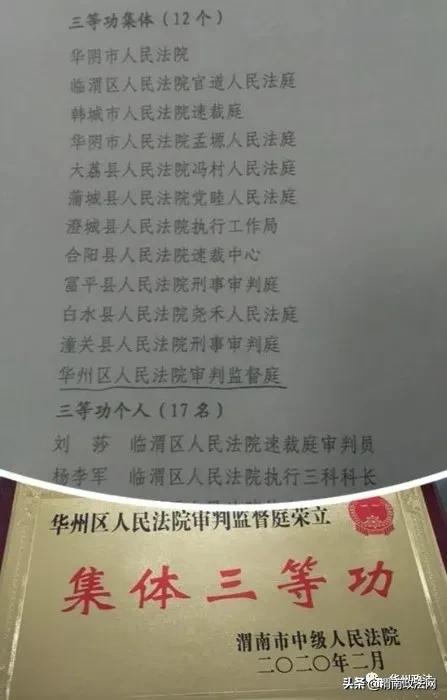 三等功集体（12个）
华阴市人民法院
临渭区人民法院官道人民法庭
韩城市人民法院速裁庭
华阴市人民法院孟塬人民法庭
大荔县人民法院冯村人民法庭
蒲城县人民法院党睦人民法庭
澄城县人民法院执行工作局
合阳县人民法院速裁中心
富平县人民法院刑事审判庭
白水县人民法院尧禾人民法庭
潼关县人民法院刑事审判庭
华州区人民法院审判监督庭
三等功个人（17名）
刘 莎 临渭区人民法院速裁庭审判员
杨李军 临渭区人民法院执行三科科长
华州区人民法院审判监督庭荣立
集体三等功
渭南市中级人民法院
二〇二〇年二月
华州政法
头条 @渭南政法网